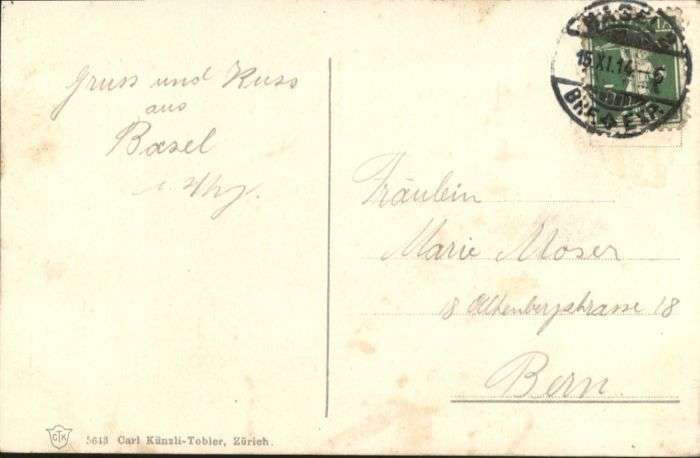 Gruss und Kuss
aus
Basel
BASEL
15.XI.14.–6
BRF. EXP.
Fräulein
Marie Moser
18 Altenbergstrasse 18
Bern.
CTK 5643 Carl Künzli-Tobler, Zürich.